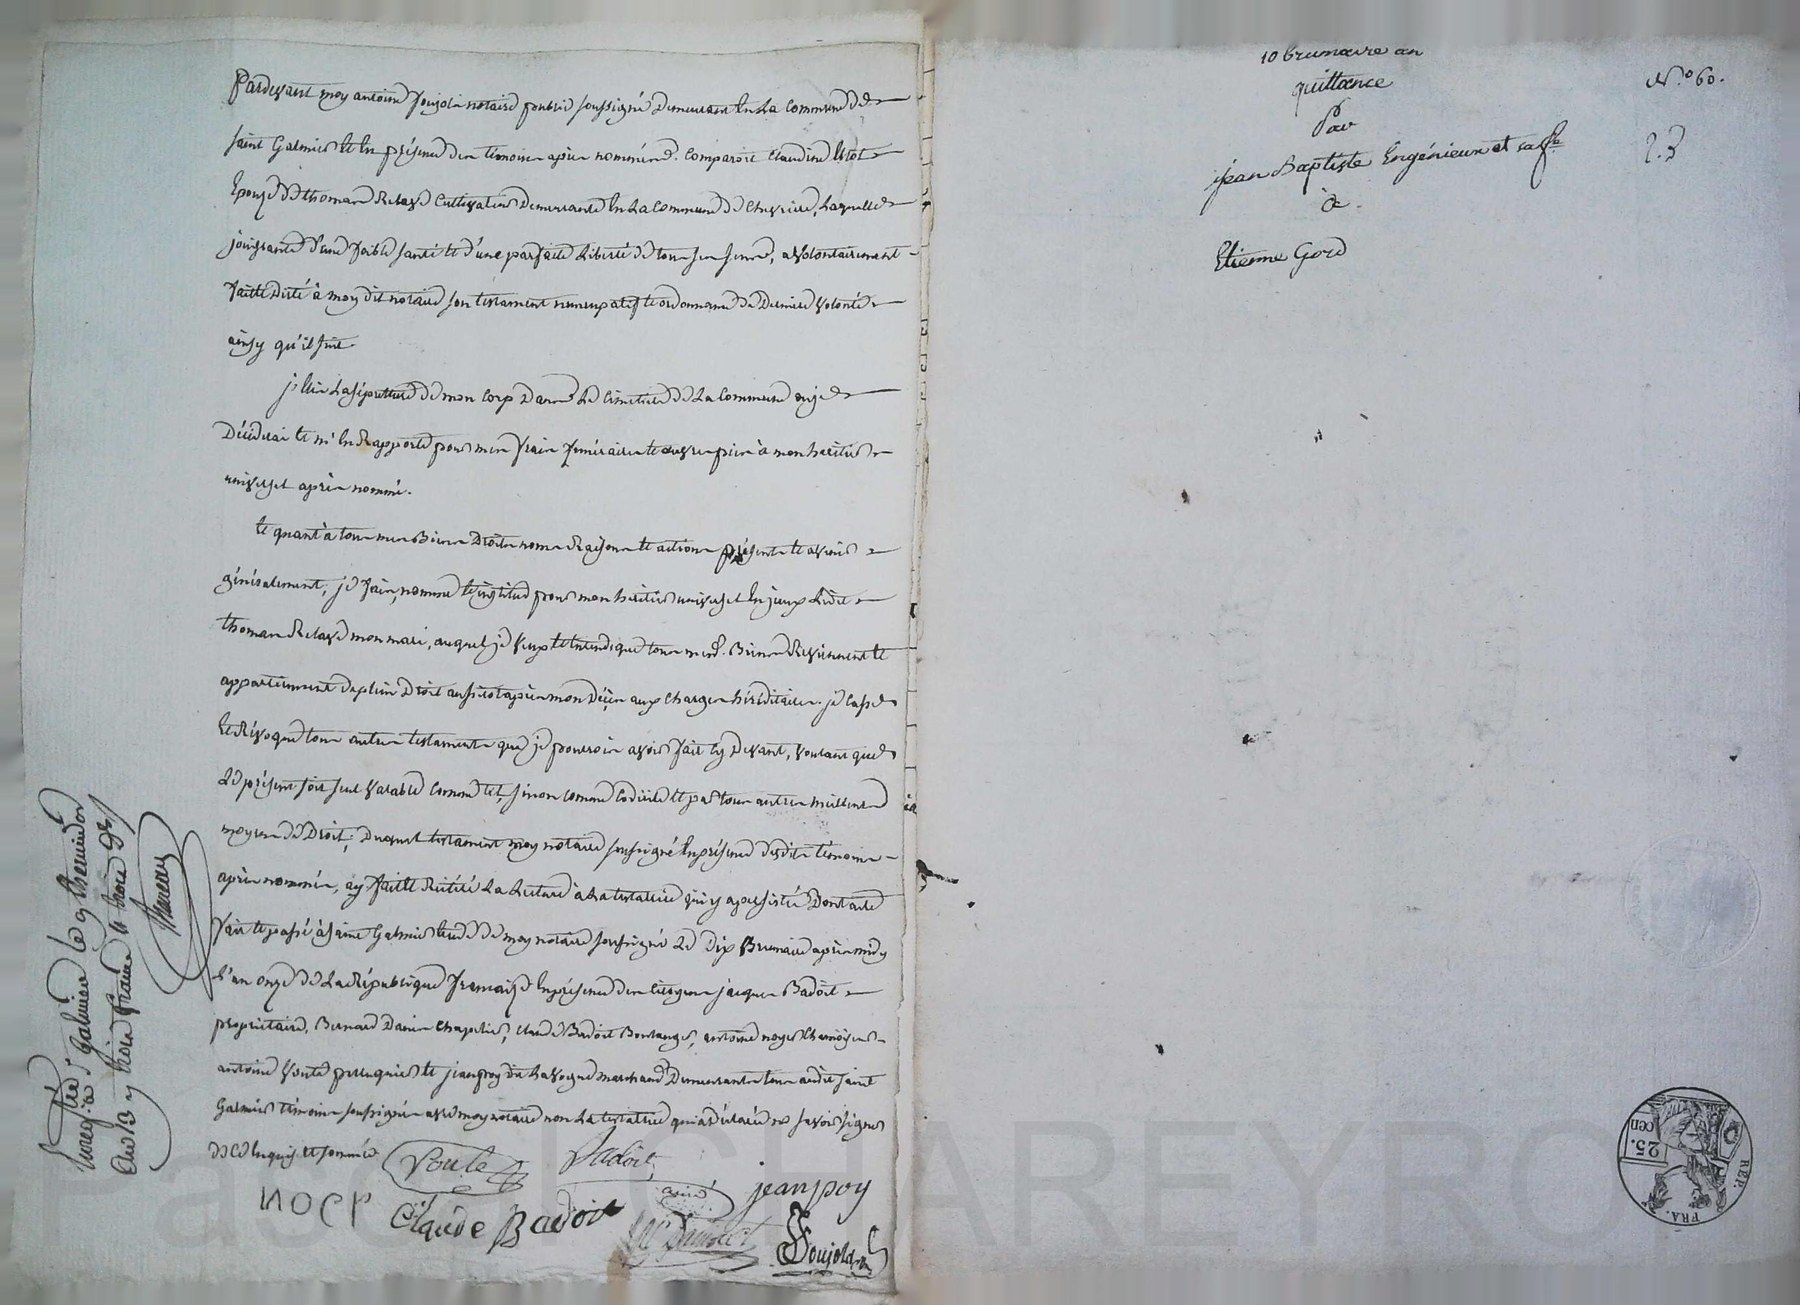 Pardevant moy antoine Poujola notaire public soussigné Demeurant En La Commune de
Saint Galmier et En présence des témoins après nommés. Comparoit Claudine
Epouze de thomas Relave Cultivateur Demeurante En La Commune de Chevriere, Laquelle
jouissante d'une faible santé et d'une parfaite Liberté de tous ses sens, a volontairement
faitte dicté à moy dit notaire son testament nuncupatif et ordonnance de Derniere volonté
ainsy qu'il suit.
j'Elis La sépulture de mon Corp Dans Le Cimetiere de La Commune ou je
Décéderai et m'En Rapporte pour mes frais funéraires et œuvres pies à mon heritier
universel après nommé.
Et quant à tous mes Biens Droits noms Raisons et actions présents et avenir
généralement, je fais, nomme et institue pour mon heritier universel
thomas Relave mon mari, auquel je veux et Entend que tous mesd. Biens Reviennent et
appartiennent de plein Droit aussitot après mon Décès aux charges héréditaires. je Casse
Et Révoque tous autres testaments que je pourrois avoir fait cy Devant, voulant que
Le présent soit seul valable Comme tel, sinon comme Codicile et par tous autres meilleurs
moyens de Droit; Duquel testament moy notaire soussigné En présence desdits témoins
après nommés, ay faitte Réitéré La Lecture à La testatrice qui y a persisté Dont acte
fait et passé à Saint Galmier Etude de moy notaire soussigné Le Dix Brumaire après midy
L'an onze de La République française En présence des Citoyens jacques Badoit
propriétaire, Bernard Danis Chapelier, Claude Badoit Boulanger, antoine noyer
antoine Voute perruquier et jean poy dit Lavergne marchand Demeurants tous audit Saint
Galmier témoins soussignés avec moy notaire non La testatrice qui a déclaré ne savoir signer
de ce Enquise et sommée
Voute Badoit
NOCP Claude Badoit jean poy
Poujola
Enregistré à St Galmier le 9 thermidor
an 13 trois francs
10 brumaire an
quittance
Par
jean Baptiste Engénieux et sa fe
à
Etienne Gord
N.º 60.
2.3
REP. FRA.
25. CEN
Pascal CHAREYRON